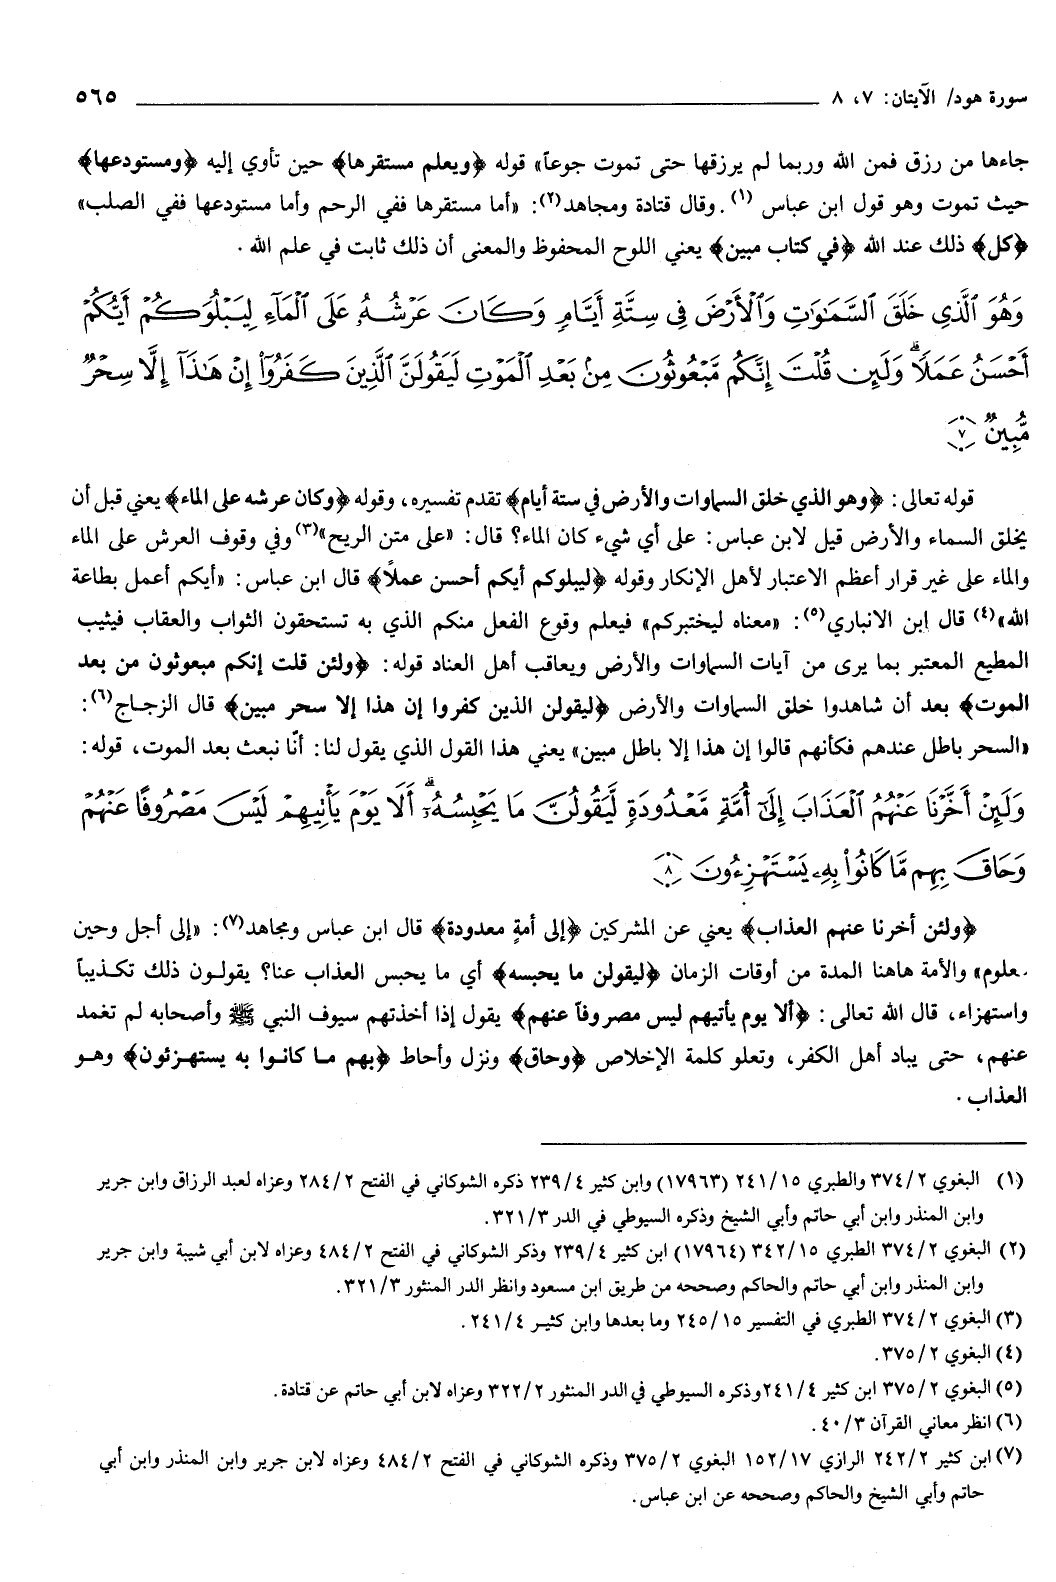 سورة هود/ الآيتان: ٧، ٨ ٥٦٥
جاءها من رزق فمن الله وربما لم يرزقها حتى تموت جوعاً» قوله ﴿ويعلم مستقرها﴾ حين تأوي إليه ﴿ومستودعها﴾
حيث تموت وهو قول ابن عباس (١). وقال قتادة ومجاهد(٢): «أما مستقرها ففي الرحم وأما مستودعها ففي الصلب»
﴿كل﴾ ذلك عند الله ﴿في كتاب مبين﴾ يعني اللوح المحفوظ والمعنى أن ذلك ثابت في علم الله .
وَهُوَ ٱلَّذِى خَلَقَ ٱلسَّمَٰوَٰتِ وَٱلْأَرْضَ فِى سِتَّةِ أَيَّامٍ وَكَانَ عَرْشُهُۥ عَلَى ٱلْمَآءِ لِيَبْلُوَكُمْ أَيُّكُمْ
أَحْسَنُ عَمَلًا ۗ وَلَئِن قُلْتَ إِنَّكُم مَّبْعُوثُونَ مِنۢ بَعْدِ ٱلْمَوْتِ لَيَقُولَنَّ ٱلَّذِينَ كَفَرُوٓا۟ إِنْ هَٰذَآ إِلَّا سِحْرٌ
مُّبِينٌ ٧
قوله تعالى: ﴿وهو الذي خلق السماوات والأرض في ستة أيام﴾ تقدم تفسيره، وقوله ﴿وكان عرشه على الماء﴾ يعني قبل أن
يخلق السماء والأرض قيل لابن عباس: على أي شيء كان الماء؟ قال: «على متن الريح»(٣) وفي وقوف العرش على الماء
والماء على غير قرار أعظم الاعتبار لأهل الإنكار وقوله ﴿ليبلوكم أيكم أحسن عملاً﴾ قال ابن عباس: «أيكم أعمل بطاعة
الله»(٤) قال إبن الانباري(٥): «معناه ليختبركم» فيعلم وقوع الفعل منكم الذي به تستحقون الثواب والعقاب فيثيب
المطيع المعتبر بما يرى من آيات السماوات والأرض ويعاقب أهل العناد قوله: ﴿ولئن قلت إنكم مبعوثون من بعد
الموت﴾ بعد أن شاهدوا خلق السماوات والأرض ﴿ليقولن الذين كفروا إن هذا إلا سحر مبين﴾ قال الزجاج(٦):
«السحر باطل عندهم فكأنهم قالوا إن هذا إلا باطل مبين» يعني هذا القول الذي يقول لنا: أنّا نبعث بعد الموت، قوله:
وَلَئِنْ أَخَّرْنَا عَنْهُمُ ٱلْعَذَابَ إِلَىٰٓ أُمَّةٍ مَّعْدُودَةٍ لَّيَقُولُنَّ مَا يَحْبِسُهُۥٓ ۗ أَلَا يَوْمَ يَأْتِيهِمْ لَيْسَ مَصْرُوفًا عَنْهُمْ
وَحَاقَ بِهِم مَّا كَانُوا۟ بِهِۦ يَسْتَهْزِءُونَ ٨
﴿ولئن أخرنا عنهم العذاب﴾ يعني عن المشركين ﴿إلى أمةٍ معدودة﴾ قال ابن عباس ومجاهد(٧): «إلى أجل وحين
معلوم» والأمة هاهنا المدة من أوقات الزمان ﴿ليقولن ما يحبسه﴾ أي ما يحبس العذاب عنا؟ يقولون ذلك تكذيباً
واستهزاء، قال الله تعالى: ﴿ألا يوم يأتيهم ليس مصروفاً عنهم﴾ يقول إذا أخذتهم سيوف النبي ﷺ وأصحابه لم تغمد
عنهم، حتى يباد أهل الكفر، وتعلو كلمة الإخلاص ﴿وحاق﴾ ونزل وأحاط ﴿بهم ما كانوا به يستهزئون﴾ وهو
العذاب .
(١) البغوي ٢/ ٣٧٤ والطبري ١٥/ ٢٤١ (١٧٩٦٣) وابن كثير ٤/ ٢٣٩ ذكره الشوكاني في الفتح ٢/ ٢٨٤ وعزاه لعبد الرزاق وابن جرير
وابن المنذر وابن أبي حاتم وأبي الشيخ وذكره السيوطي في الدر ٣/ ٣٢١.
(٢) البغوي ٢/ ٣٧٤ الطبري ١٥/ ٣٤٢ (١٧٩٦٤) ابن كثير ٤/ ٢٣٩ وذكر الشوكاني في الفتح ٢/ ٤٨٤ وعزاه لابن أبي شيبة وابن جرير
وابن المنذر وابن أبي حاتم والحاكم وصححه من طريق ابن مسعود وانظر الدر المنثور ٣/ ٣٢١.
(٣) البغوي ٢/ ٣٧٤ الطبري في التفسير ١٥/ ٢٤٥ وما بعدها وابن كثير ٤/ ٢٤١.
(٤) البغوي ٢/ ٣٧٥.
(٥) البغوي ٢/ ٣٧٥ ابن كثير ٤/ ٢٤١ وذكره السيوطي في الدر المنثور ٢/ ٣٢٢ وعزاه لابن أبي حاتم عن قتادة.
(٦) انظر معاني القرآن ٣/ ٤٠.
(٧) ابن كثير ٢/ ٢٤٢ الرازي ١٧/ ١٥٢ البغوي ٢/ ٣٧٥ وذكره الشوكاني في الفتح ٢/ ٤٨٤ وعزاه لابن جرير وابن المنذر وابن أبي
حاتم وأبي الشيخ والحاكم وصححه عن ابن عباس.